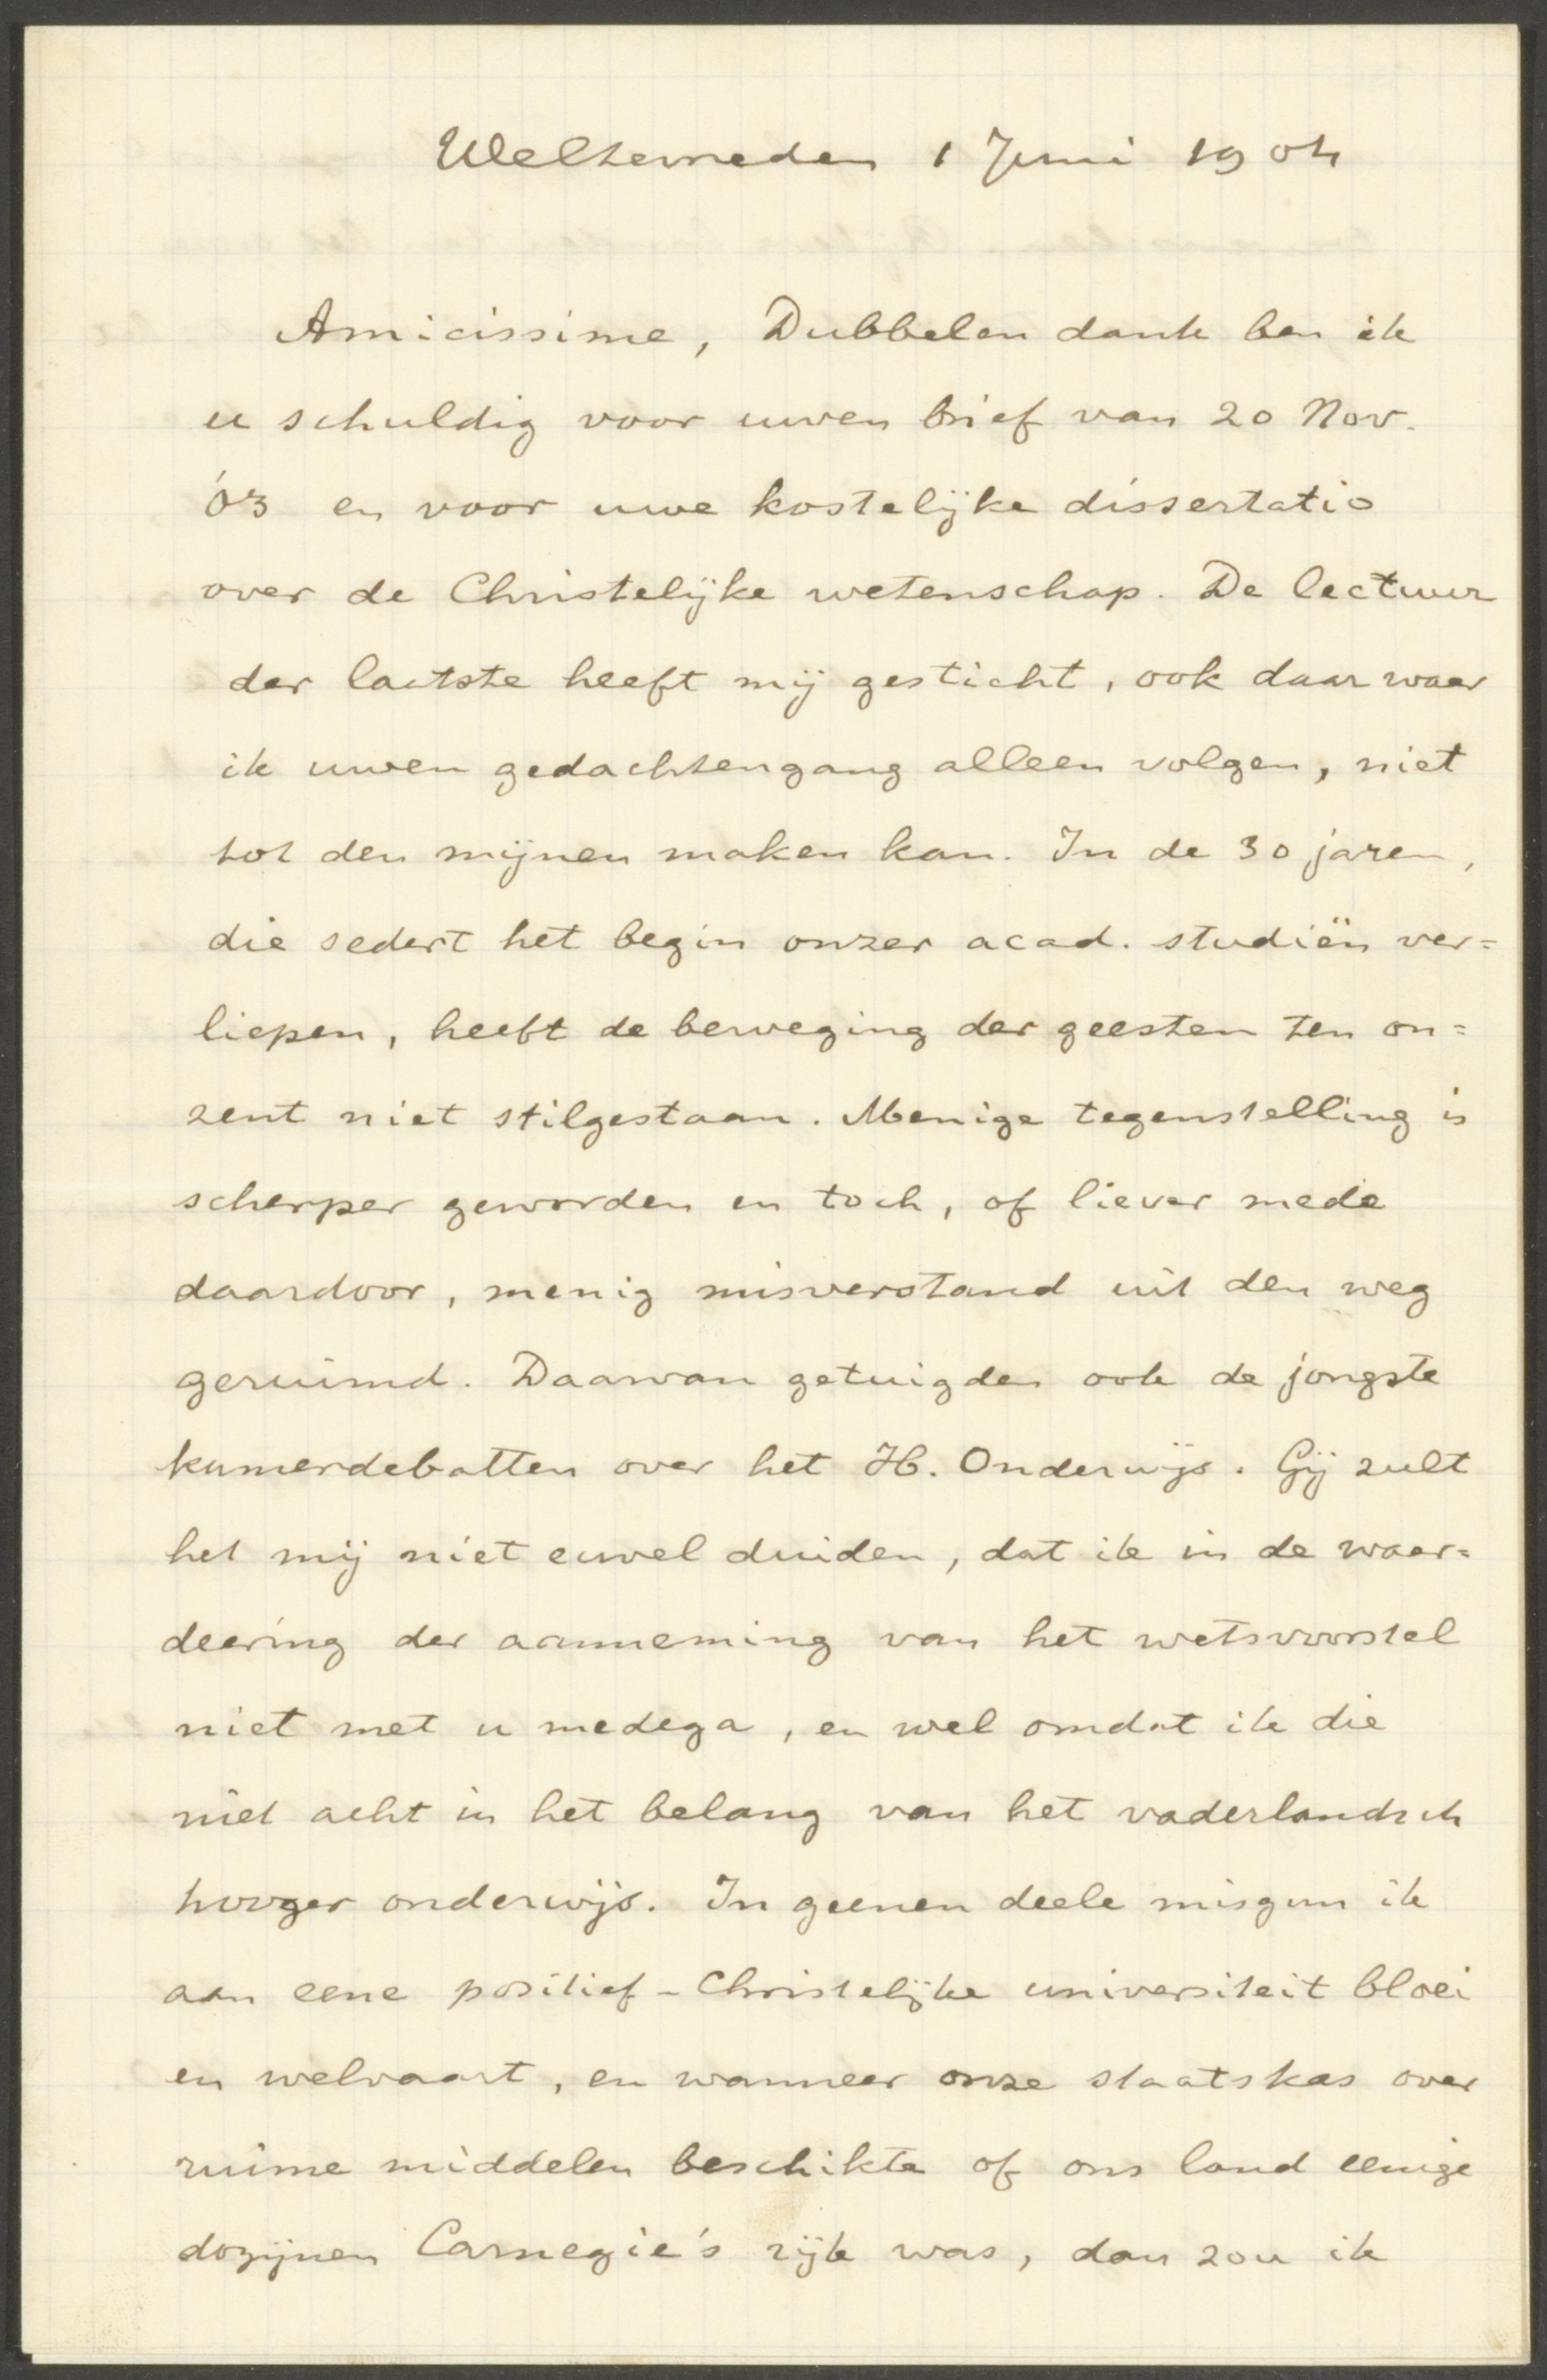 Weltevreden 1 Juni 1904
Amicissime, Dubbelen dank ben ik
u schuldig voor uwen brief van 20 Nov.
'03 en voor uwe kostelijke dissertatio
over de Christelijke wetenschap. De lectuur
der laatste heeft mij gesticht, ook daar waar
ik uwen gedachtengang alleen volgen, niet
tot den mijnen maken kan. In de 30 jaren,
die sedert het begin onzer acad. studiën ver=
liepen, heeft de beweging der geesten ten on=
zent niet stilgestaan. Menige tegenstelling is
scherper geworden en toch, of liever mede
daardoor, menig misverstand uit den weg
geruimd. Daarvan getuigden ook de jongste
kamerdebatten over het H. Onderwijs. Gij zult
het mij niet euvel duiden, dat ik in de waar=
deering der aanneming van het wetsvoorstel
niet met u medega, en wel omdat ik die
niet acht in het belang van het vaderlandsch
hooger onderwijs. In geenen deele misgun ik
aan eene positief-Christelijke universiteit bloei
en welvaart, en wanneer onze staatskas over
ruime middelen beschikte of ons land eenige
dozijnen Carnegie's rijk was, dan zou ik